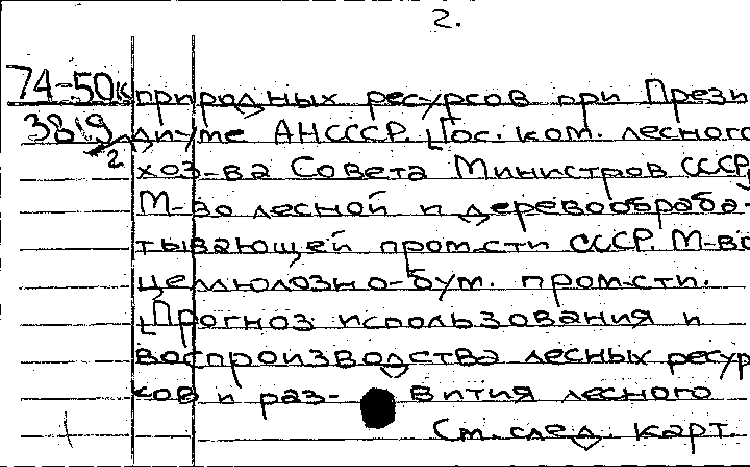 2.
74-50к природных ресурсов при Прези
3819 диуме АНСССР. Гос. ком. лесного
2 хоз-ва Совета Министров СССР,
М-во лесной и деревообраба-
тывающей пром-сти СССР. М-во
целлюлозно-бум. пром-сти.
Прогноз использования и
воспроизводства лесных ресур
сов и раз- вития лесного
См. след. карт.